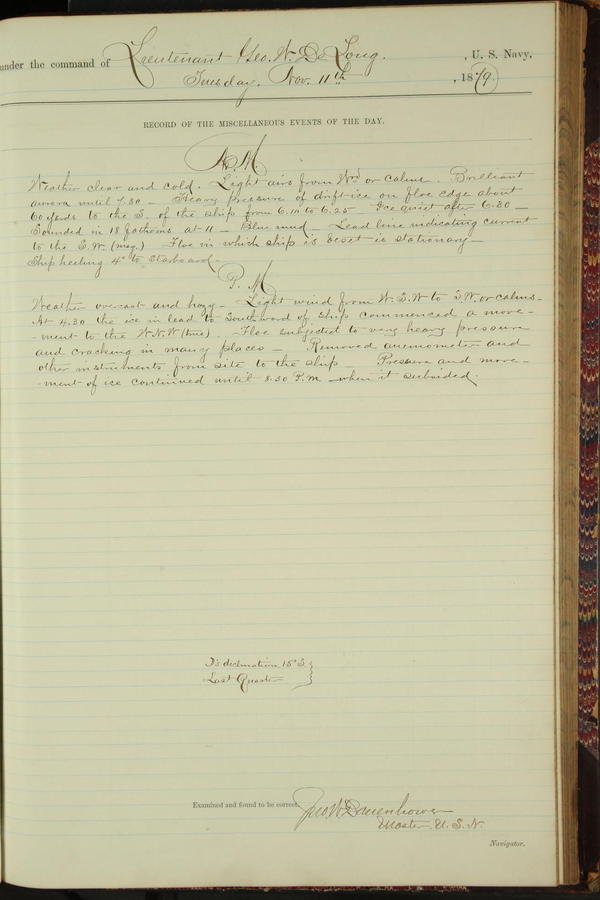 under the command of Lieutenant Geo. W. De Long. , U. S. Navy,
Tuesday, Nov. 11th , 1879.
RECORD OF THE MISCELLANEOUS EVENTS OF THE DAY.
A. M.
Weather clear and cold. Light airs from Nrd or calms. Brilliant
aurora until 4.30 — Heavy pressure of drift-ice on floe edge about
60 yards to the S. of the ship from 6.10 to 6.25 Ice quiet after 6.30 —
Sounded in 18 fathoms at 11 — Blue mud — Lead line indicating current
to the S.W. (mag.) Floe in which ship is beset is stationary —
Ship heeling 4° to starboard —
P. M.
Weather overcast and hazy — Light wind from W.S.W to S.W. or calms —
At 4.30 the ice in lead to Southward of ship commenced a move-
-ment to the W.N.W (true). Floe subjected to very heavy pressure
and cracking in many places — Removed anemometer and
other instruments from site to the ship — Pressure and move-
-ment of ice continued until 8.30 P.M — when it subsided.
declination 15° S.
Last Quarter
Examined and found to be correct, Jno W Danenhower
Master, U. S. N.
Navigator.